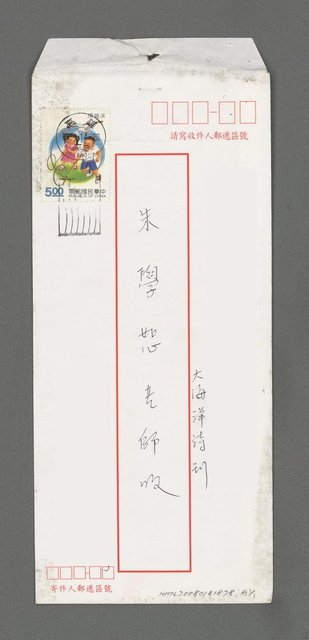 5.00
中華民國郵票
REPUBLIC OF CHINA
請寫收件人郵遞區號
朱學恕老師收
大海洋詩刊
寄件人郵遞區號
NMTL20080181878